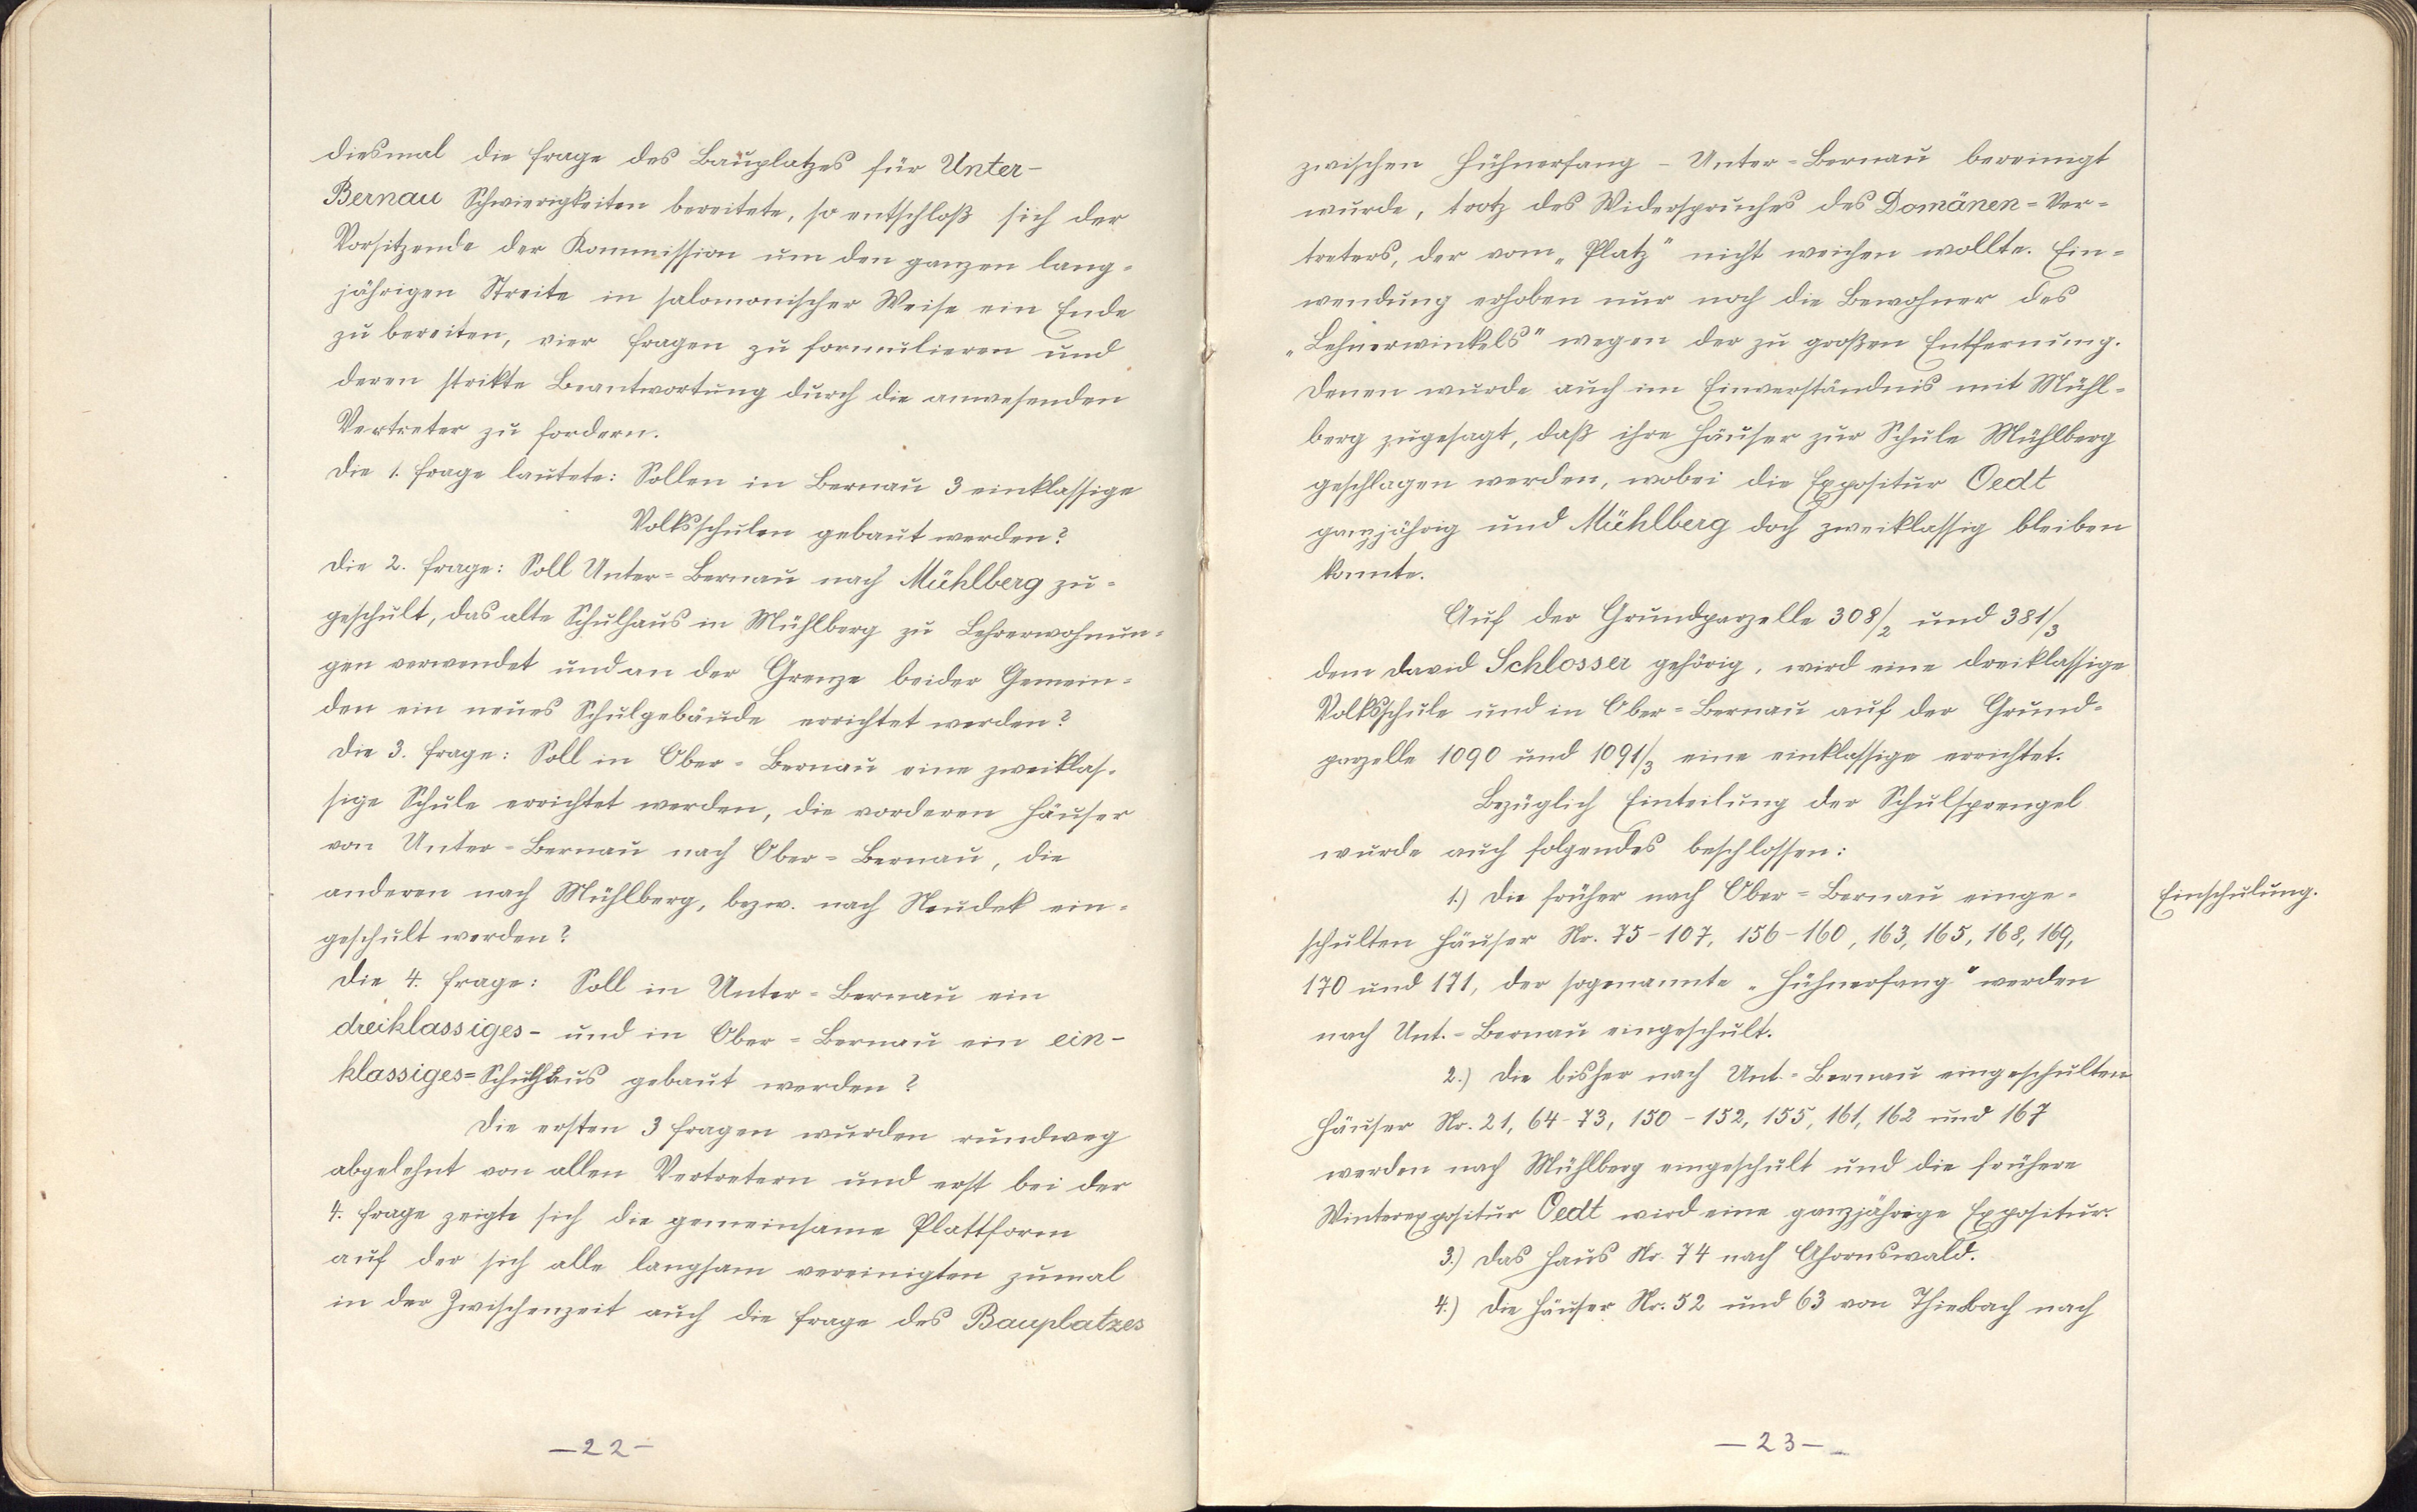 diesmal die Frage des Bauplatzes für Unter-
Bernau Schwierigkeiten bereitete, so entschloß sich der
Vorsitzende der Kommission um den ganzen lang=
jährigen Streite in salomonischer Weise ein Ende
zu bereiten, vier Fragen zu formulieren und
deren strikte Beantwortung durch die anwesenden
Vertreter zu fordern.
Die 1. Frage lautete: Sollen in Bernau 3 einklassige
Volksschulen gebaut werden?
Die 2. Frage: Soll Unter=Bernau nach Mühlberg zu=
geschult, das alte Schulhaus in Mühlberg zu Lehrerwohnun=
gen verwendet und an der Grenze beider Gemein=
den ein neues Schulgebäude errichtet werden?
Die 3. Frage: Soll in Ober=Bernau eine zweiklas=
sige Schule errichtet werden, die vorderen Häuser
von Unter=Bernau nach Ober=Bernau, die
anderen nach Mühlberg, bezw. nach Neudek ein=
geschult werden?
Die 4. Frage: Soll in Unter=Bernau ein
dreiklassiges- und in Ober=Bernau ein ein-
klassiges=Schulhaus gebaut werden?
Die ersten 3 Fragen wurden rundweg
abgelehnt von allen Vertretern und erst bei der
4. Frage zeigte sich die gemeinsame Plattform
auf der sich alle langsam vereinigten zumal
in der Zwischenzeit auch die Frage des Bauplatzes
-22-
zwischen Hühnerfang - Unter=Bernau bereinigt
wurde, trotz des Widerspruches des Domänen=Ver=
treters, der vom „Platz" nicht weichen wollte. Ein=
wendung erhoben nur noch die Bewohner des
„Lehnerwinkels" wegen der zu großen Entfernung.
Denen wurde auch im Einverständnis mit Mühl=
berg zugesagt, daß ihre Häuser zur Schule Mühlberg
geschlagen werden, wobei die Expositur Oedt
ganzjährig und Mühlberg doch zweiklassig bleiben
konnte.
Auf der Grundparzelle 308/2 und 381/3
dem David Schlosser gehörig, wird eine dreiklassige
Volksschule und in Ober=Bernau auf der Grund=
parzelle 1090 und 1091/3 eine einklassige errichtet.
Bezüglich Einteilung der Schulsprengel
wurde auch folgendes beschlossen:
1.) Die früher nach Ober=Bernau einge=
schulten Häuser Nr. 75-107, 156-160, 163, 165, 168, 169,
170 und 171, der sogenannte „Hühnerfang" werden
nach Unt.=Bernau eingeschult.
2.) Die bisher nach Unt.=Bernau eingeschulten
Häuser Nr. 21, 64-73, 150-152, 155, 161, 162 und 167
werden nach Mühlberg eingeschult und die frühere
Winterexpositur Oedt wird eine ganzjährige Expositur.
3.) Das Haus Nr. 74 nach Ahornswald.
4.) Die Häuser Nr. 52 und 63 von Thierbach nach
Einschulung.
-23-